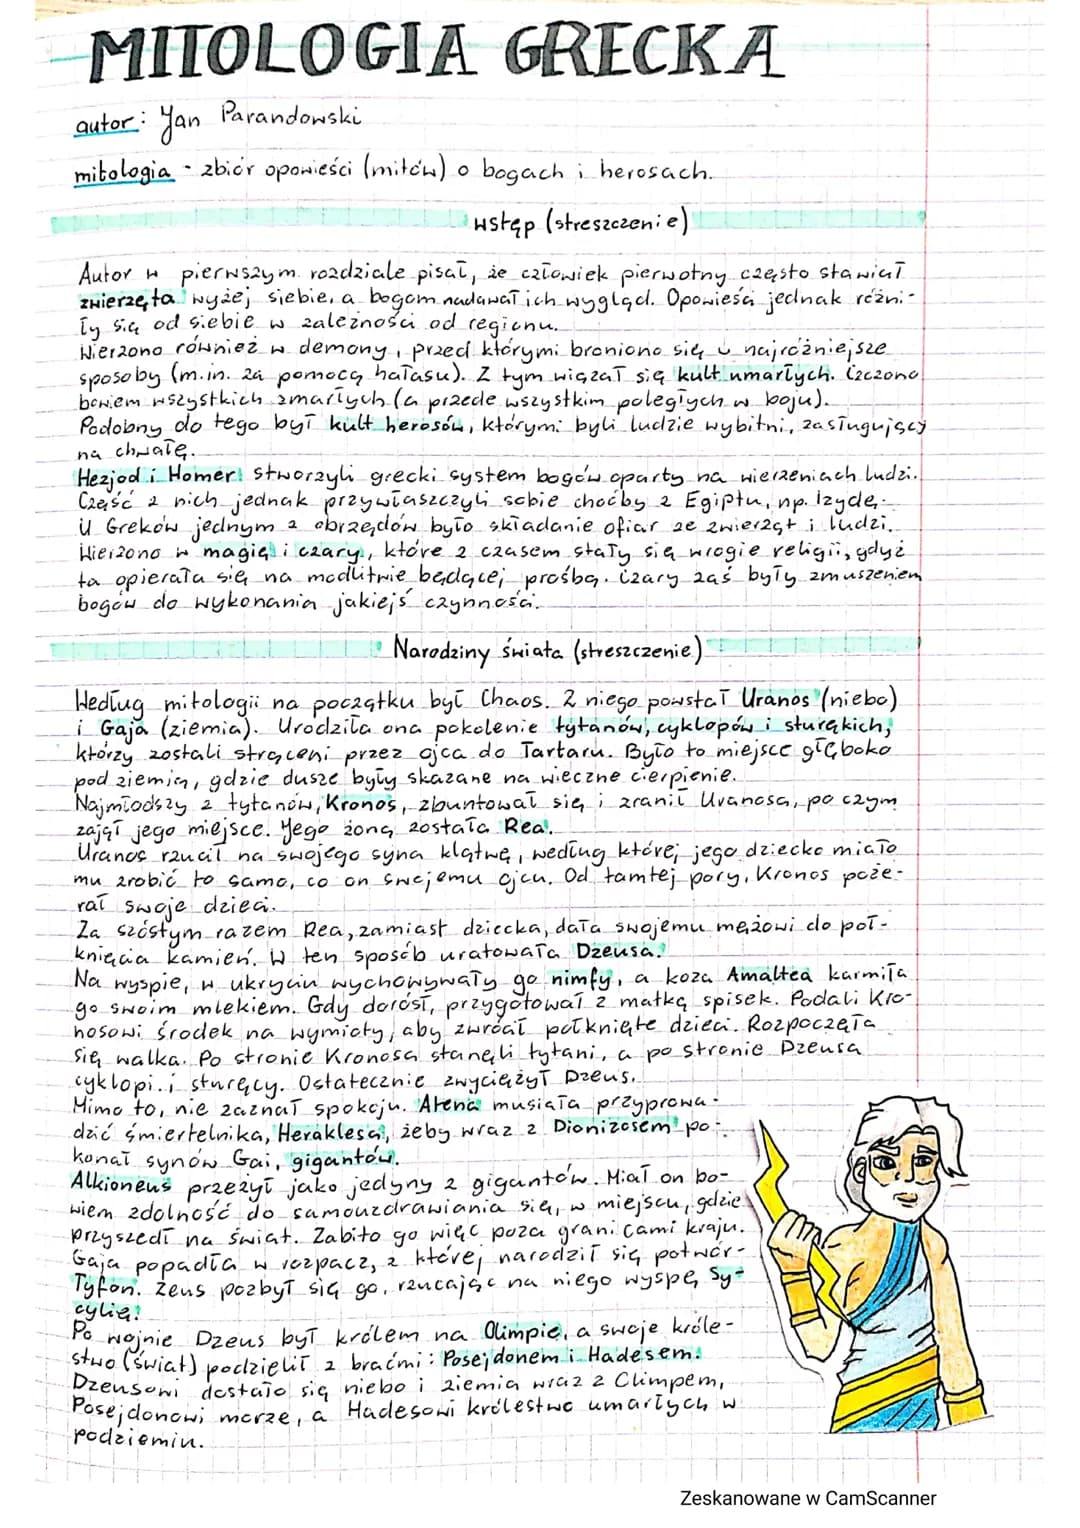 MITOLOGIA GRECKA
autor: Jan Parandowski
mitologia - zbiór opowieści (mitów) o bogach i herosach.
wstęp (streszczenie)
Autor w pierwszym rozdziale pisał, że człowiek pierwotny często stawiał
zwierzęta wyżej siebie, a bogom nadawał ich wygląd. Opowieści jednak różni-
ły się od siebie w zależności od regionu.
Wierzono również w demony, przed którymi broniono się w najróżniejsze
sposoby (m.in. za pomocą hałasu). Z tym wiązał się kult umarłych. Czczono
bowiem wszystkich zmarłych (a przede wszystkim poległych w boju).
Podobny do tego był kult herosów, którymi byli ludzie wybitni, zasługujący
na chwałę.
Hezjod i Homer stworzyli grecki system bogów oparty na wierzeniach ludzi.
Część z nich jednak przywłaszczyli sobie choćby z Egiptu, np. Izydę.
U Greków jednym z obrzędów było składanie ofiar ze zwierząt i ludzi.
Wierzono w magię i czary, które z czasem stały się wrogie religii, gdyż
ta opierała się na modlitwie będącej prośbą. Czary zaś były zmuszeniem
bogów do wykonania jakiejś czynności.
Narodziny świata (streszczenie)
Według mitologii na początku był Chaos. Z niego powstał Uranos (niebo)
i Gaja (ziemia). Urodziła ona pokolenie tytanów, cyklopów i sturękich,
którzy zostali strąceni przez ojca do Tartaru. Było to miejsce głęboko
pod ziemią, gdzie dusze były skazane na wieczne cierpienie.
Najmłodszy z tytanów, Kronos, zbuntował się i zranił Uranosa, po czym
zajął jego miejsce. Jego żoną została Rea.
Uranos rzucił na swojego syna klątwę, według której jego dziecko miało
mu zrobić to samo, co on swojemu ojcu. Od tamtej pory, Kronos poże-
rał swoje dzieci.
Za szóstym razem Rea, zamiast dziecka, dała swojemu mężowi do poł-
knięcia kamień. W ten sposób uratowała Dzeusa.
Na wyspie, w ukryciu wychowywały go nimfy, a koza Amaltea karmiła
go swoim mlekiem. Gdy dorósł, przygotował z matką spisek. Podali Kro-
nosowi środek na wymioty, aby zwrócił połknięte dzieci. Rozpoczęła
się walka. Po stronie Kronosa stanęli tytani, a po stronie Dzeusa
cyklopi i sturęcy. Ostatecznie zwyciężył Dzeus.
Mimo to, nie zaznał spokoju. Atena musiała przyprowa-
dzić śmiertelnika, Heraklesa, żeby wraz z Dionizosem po-
konał synów Gai, gigantów.
Alkioneus przeżył jako jedyny z gigantów. Miał on bo-
wiem zdolność do samouzdrawiania się, w miejscu, gdzie
przyszedł na świat. Zabito go więc poza granicami kraju.
Gaja popadła w rozpacz, z której narodził się potwór-
Tyfon. Zeus pozbył się go, rzucając na niego wyspę Sy-
cylię.
Po wojnie Dzeus był królem na Olimpie, a swoje króle-
stwo (świat) podzielił z braćmi: Posejdonem i Hadesem.
Dzeusowi dostało się niebo i ziemia wraz z Olimpem,
Posejdonowi morze, a Hadesowi królestwo umarłych w
podziemiu.
Zeskanowane w CamScanner